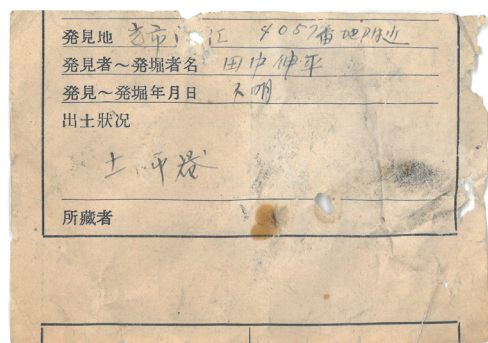 発見地 市 江 4057番地附近
発見者～発堀者名 田中伸平
発見～発堀年月日 不明
出土狀況
土 器
所藏者